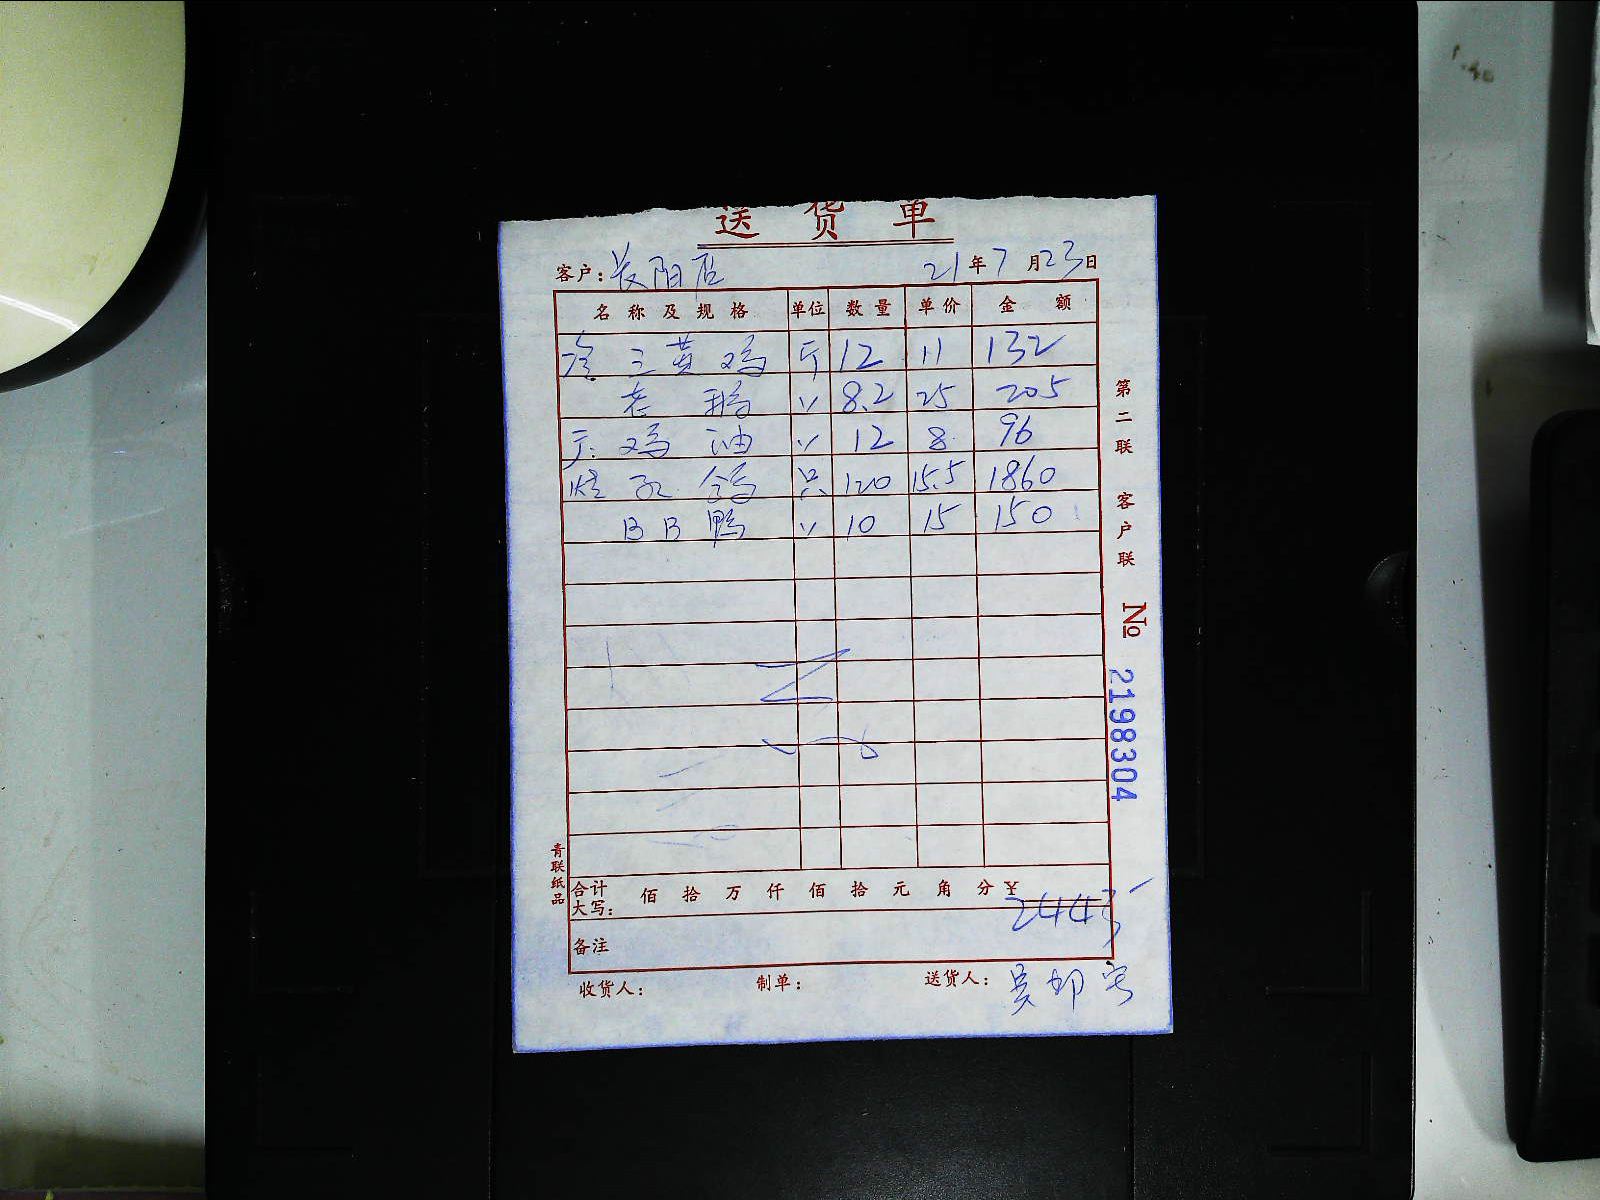 送货单
客户: 长阳店 21年7月23日
名称及规格 单位 数量 单价 金额
冷 三黄鸡 斤 12 11 132
老 鹅 〃 8.2 25 205
鸡油 〃 12 8 96
乳鸽 只 120 15.5 1860
BB鸭 〃 10 15 150
合计大写: 佰 拾 万 仟 佰 拾 元 角 分 ¥ 2443
备注
收货人: 制单: 送货人:
第二联 客户联 No 2198304
青联纸品